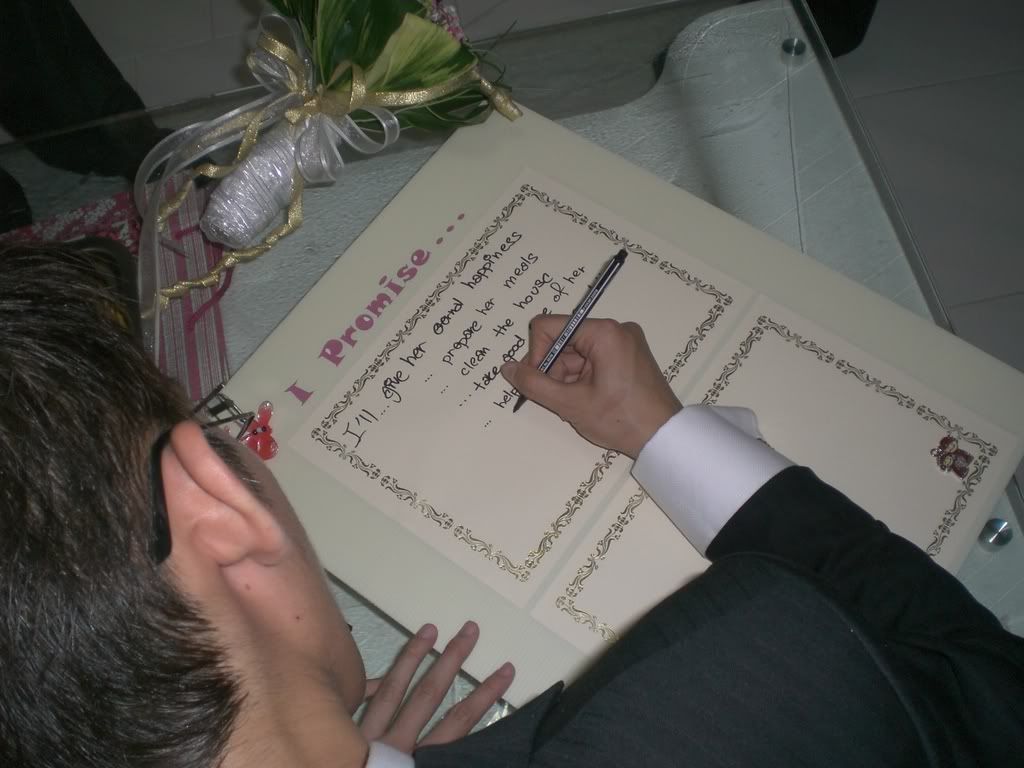 I Promise...
I'll... give her eternal happiness
... prepare her meals
... clean the house
... take good of her
help